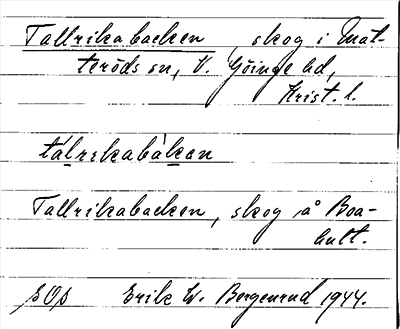 Tallrikabacken, skog i Mat-
teröds sn, V. Göinge hd,
Krist. l.
tálrikabàkan
Tallrikabacken, skog å Boa-
hult.
Erik W. Bergenrud 1944.